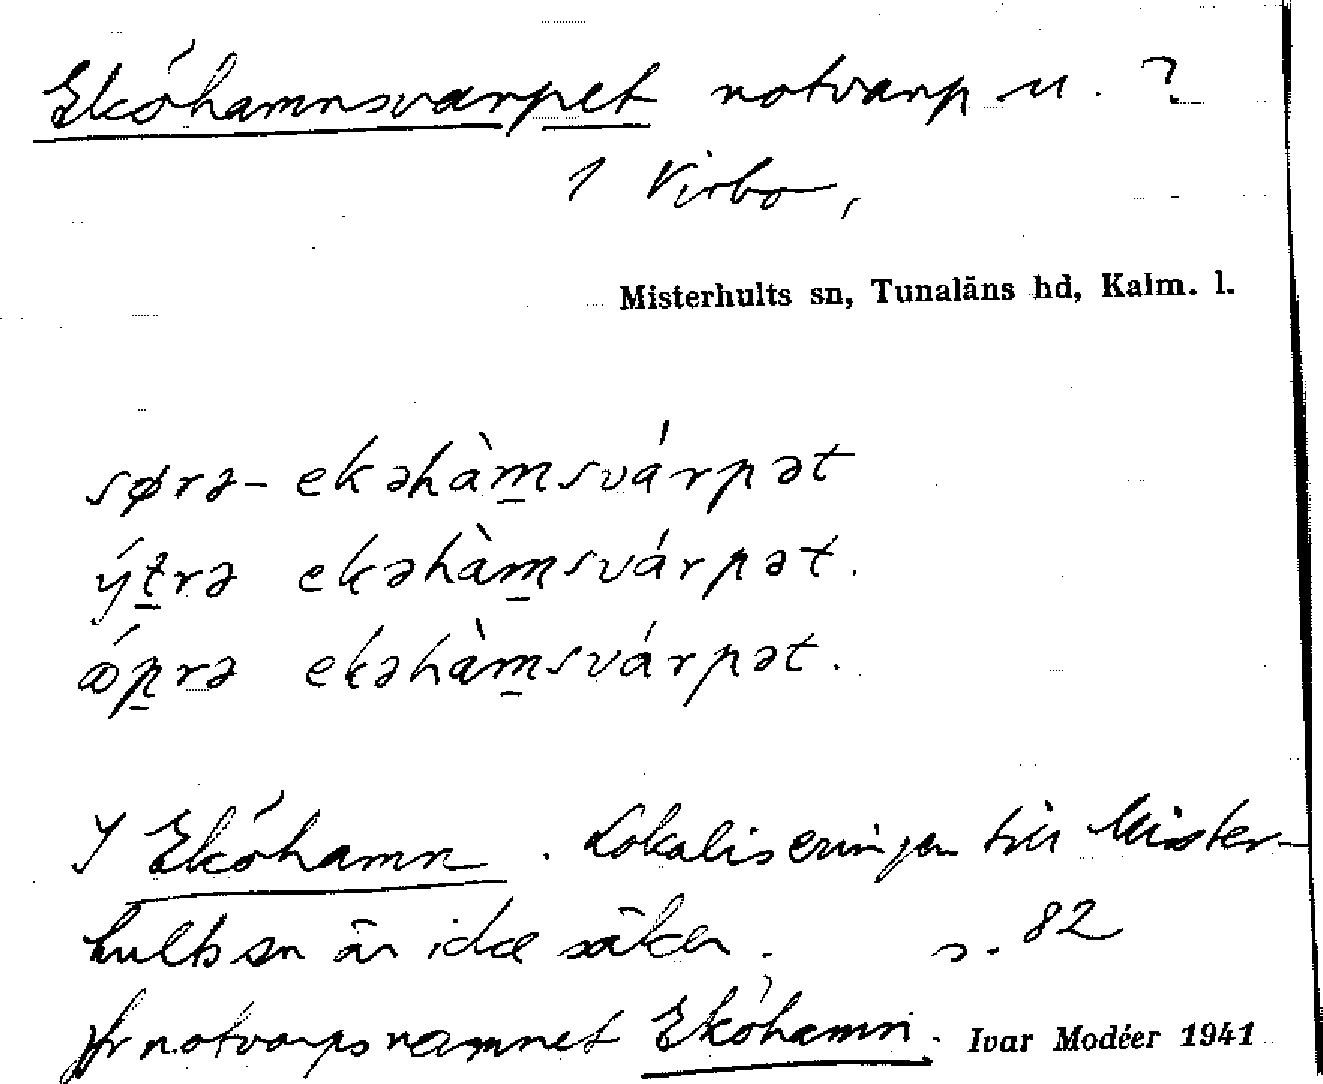 Ekóhamnsvarpet notvarp u. ?
1 Virbo,
Misterhults sn, Tunaläns hd, Kalm. l.
sørə- ekəhàm̲svárpət
ýt̲rə ekəhàm̲svárpət.
ǿp̲rə ekəhàm̲svárpət.
I Ekóhamn. Lokaliseringen till Mister-
hults sn är icke säker. s. 82
Jfr notvarpsnamnet Ekóhamn. Ivar Modéer 1941